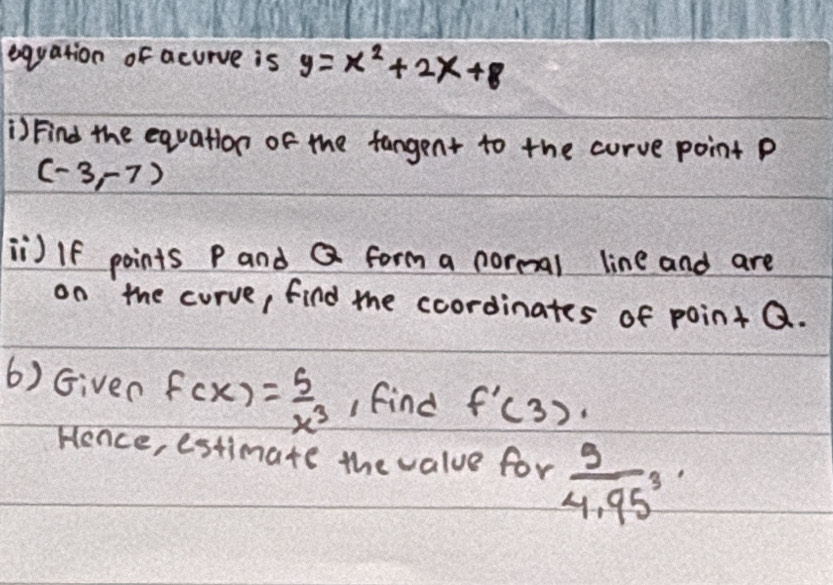 equation of a curve is y = x² + 2x + 8
i) Find the equation of the tangent to the curve point P
(-3, -7)
ii) If points P and Q form a normal line and are
on the curve, find the coordinates of point Q.
b) Given f(x) = 5/x³, find f'(3).
Hence, estimate the value for 5/4.95³.